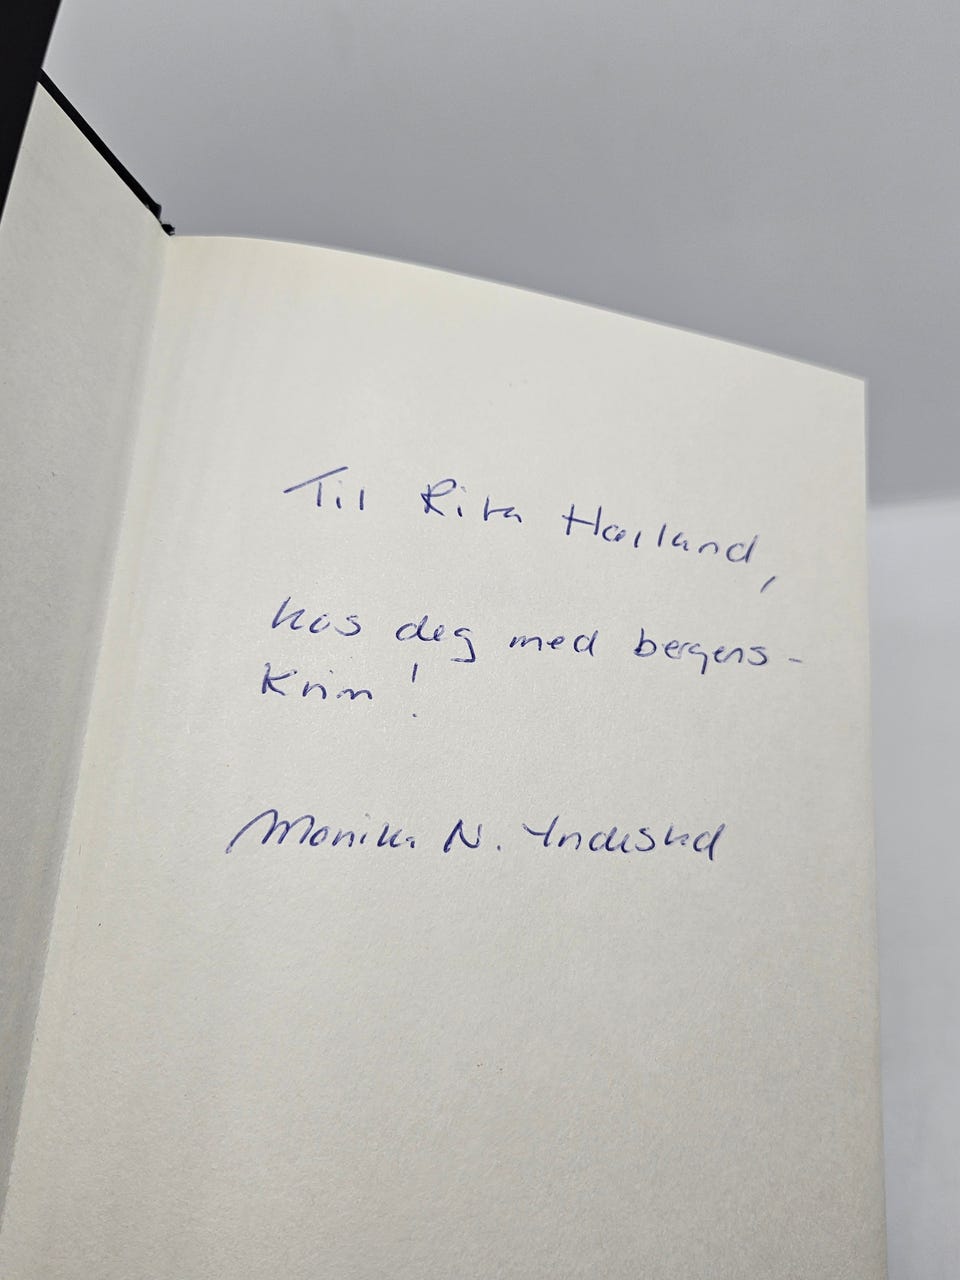 Til Rita Hailand,
kos deg med bergens-
Krim!
Monika N. Yndestad